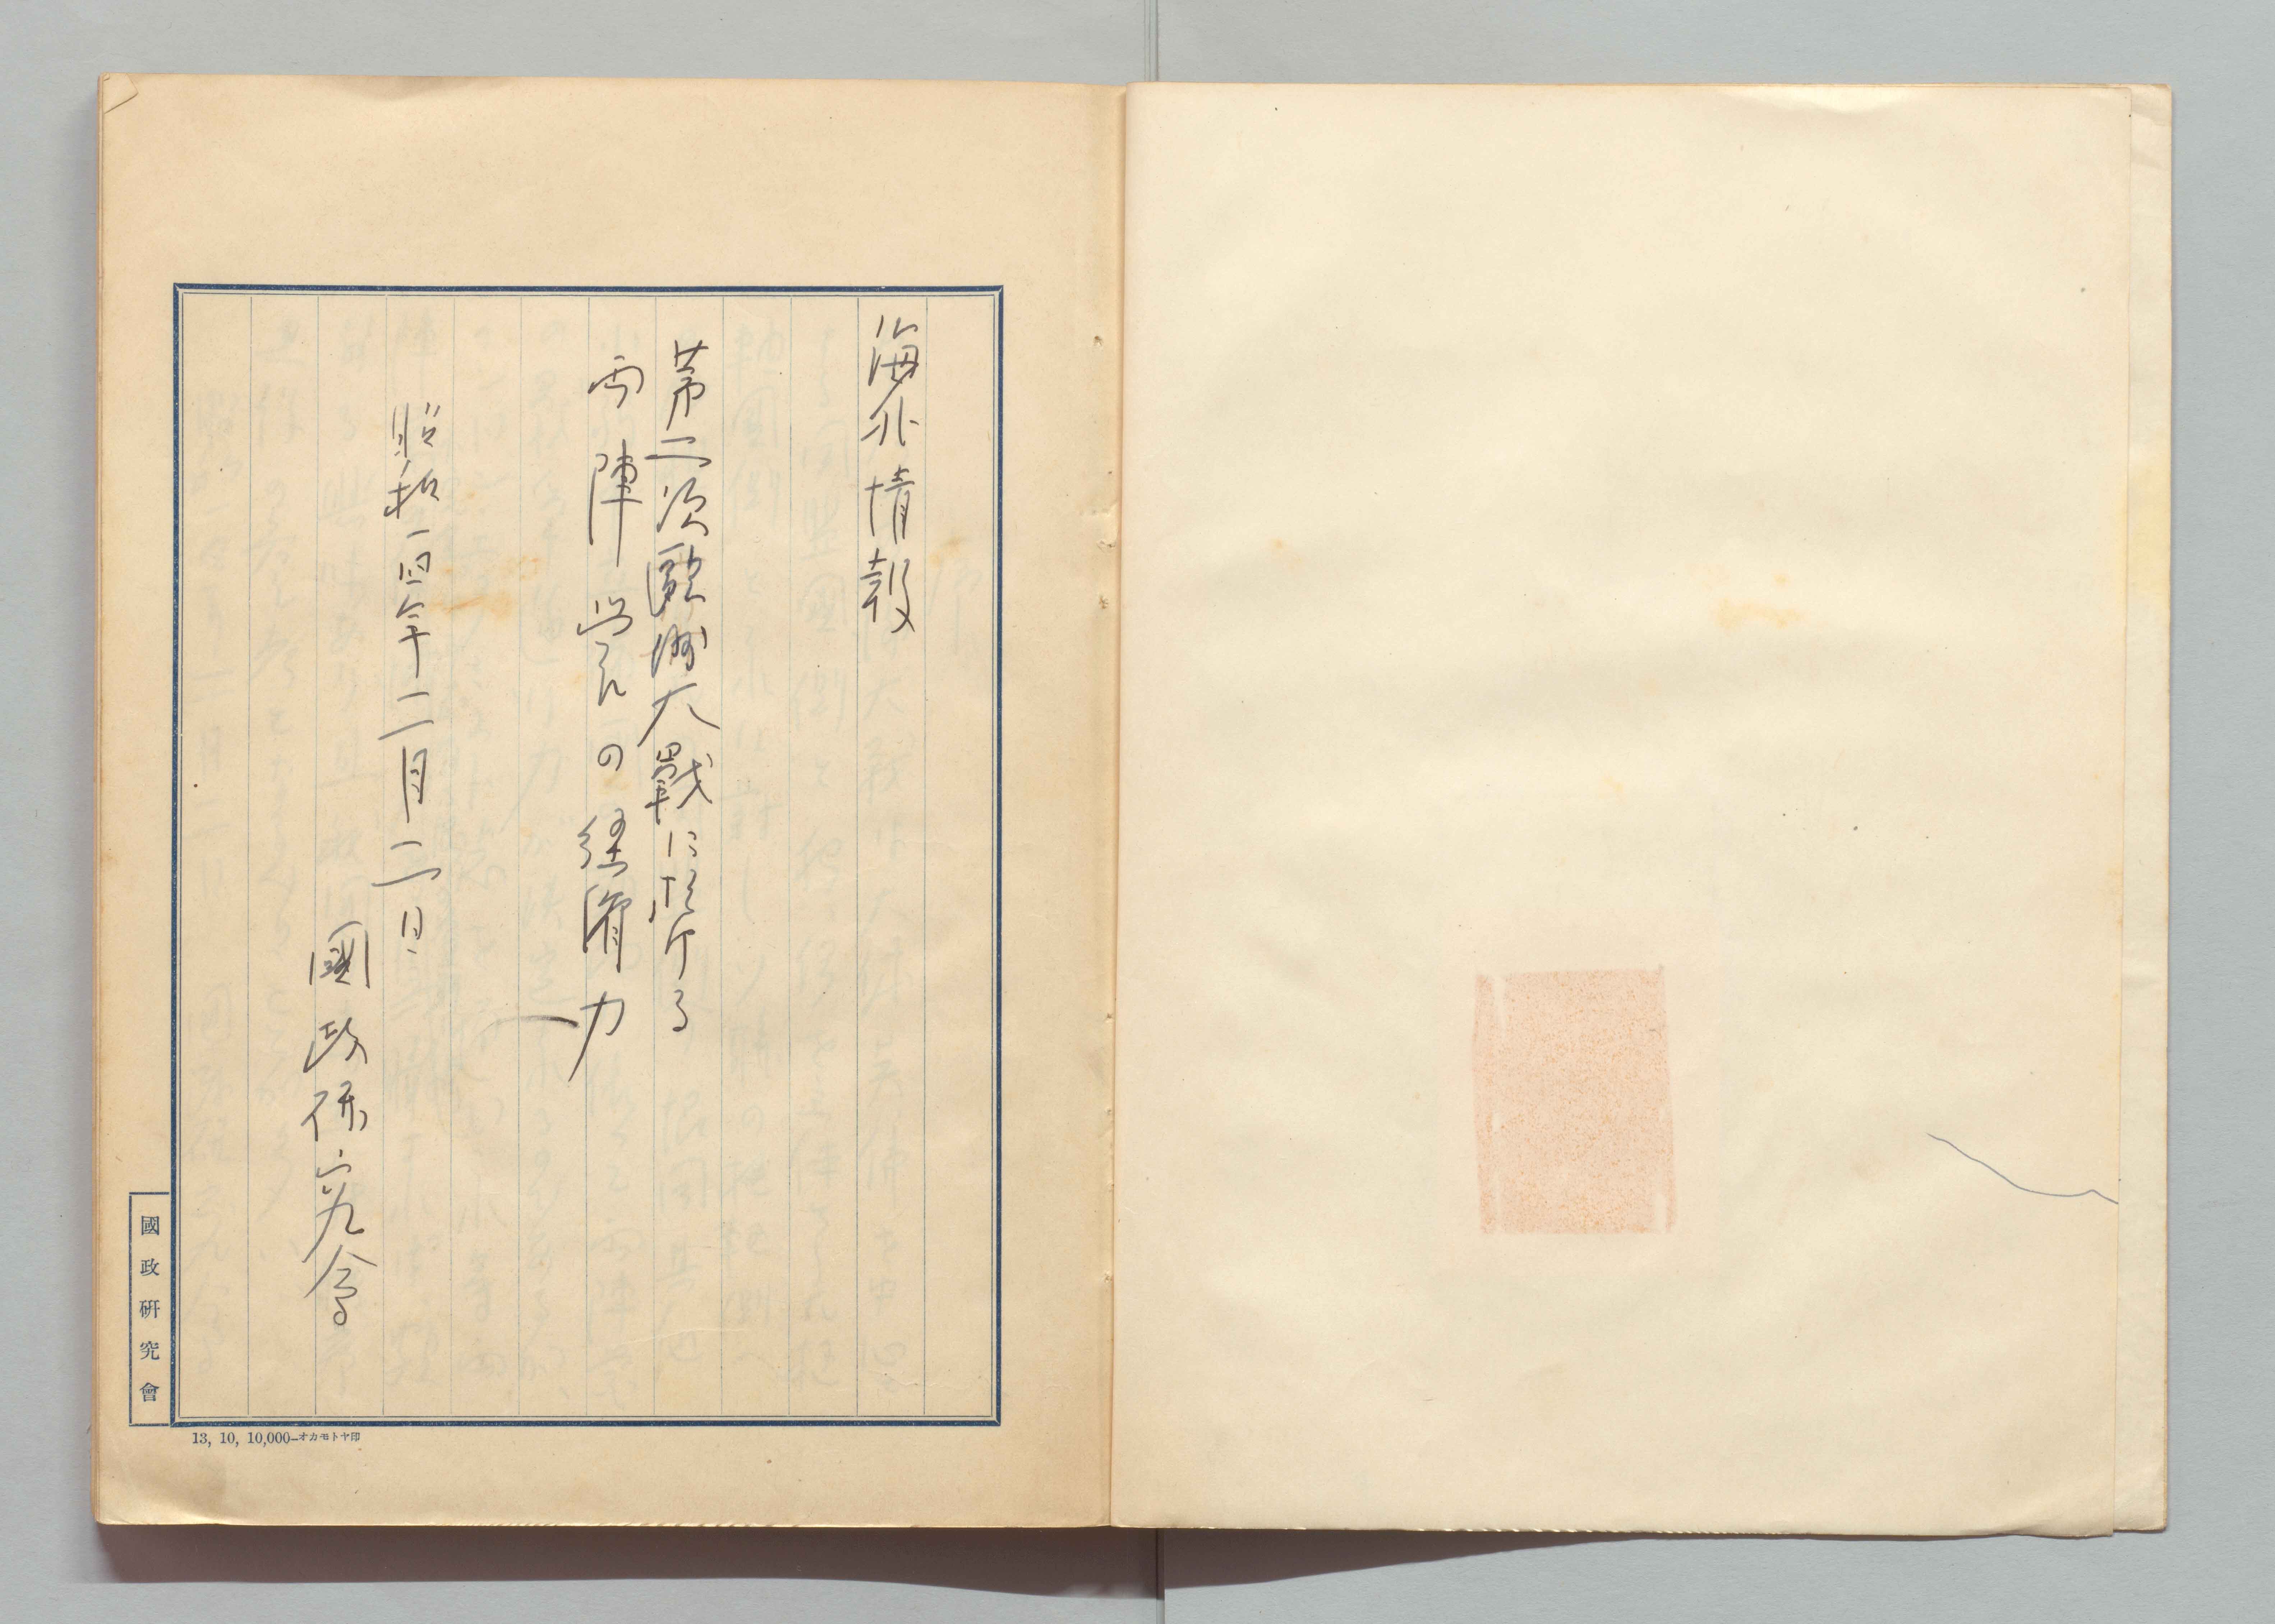 海外情報
第二次歐洲大戰に於ける
両陣営の経濟力
昭和一四年一二月一二日
國政研究会
國政研究會
13, 10, 10,000—オカモトヤ印